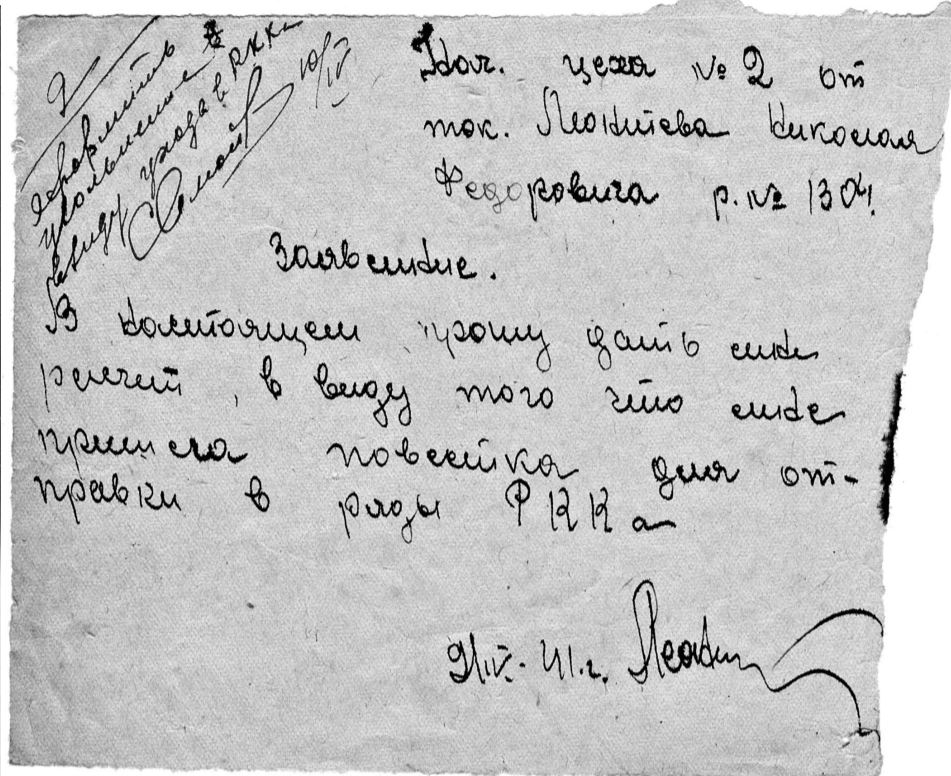 2
Оформить
увольнение в
виду ухода в РККА
10/IV
Нач. цеха № 2 от
ток. Леонтьева Николая
Федоровича р. № 1304.
Заявление.
В настоящем прошу дать мне
расчет, в виду того что мне
пришла повестка для от-
правки в ряды РККа
9/IV-41.г. Леонт